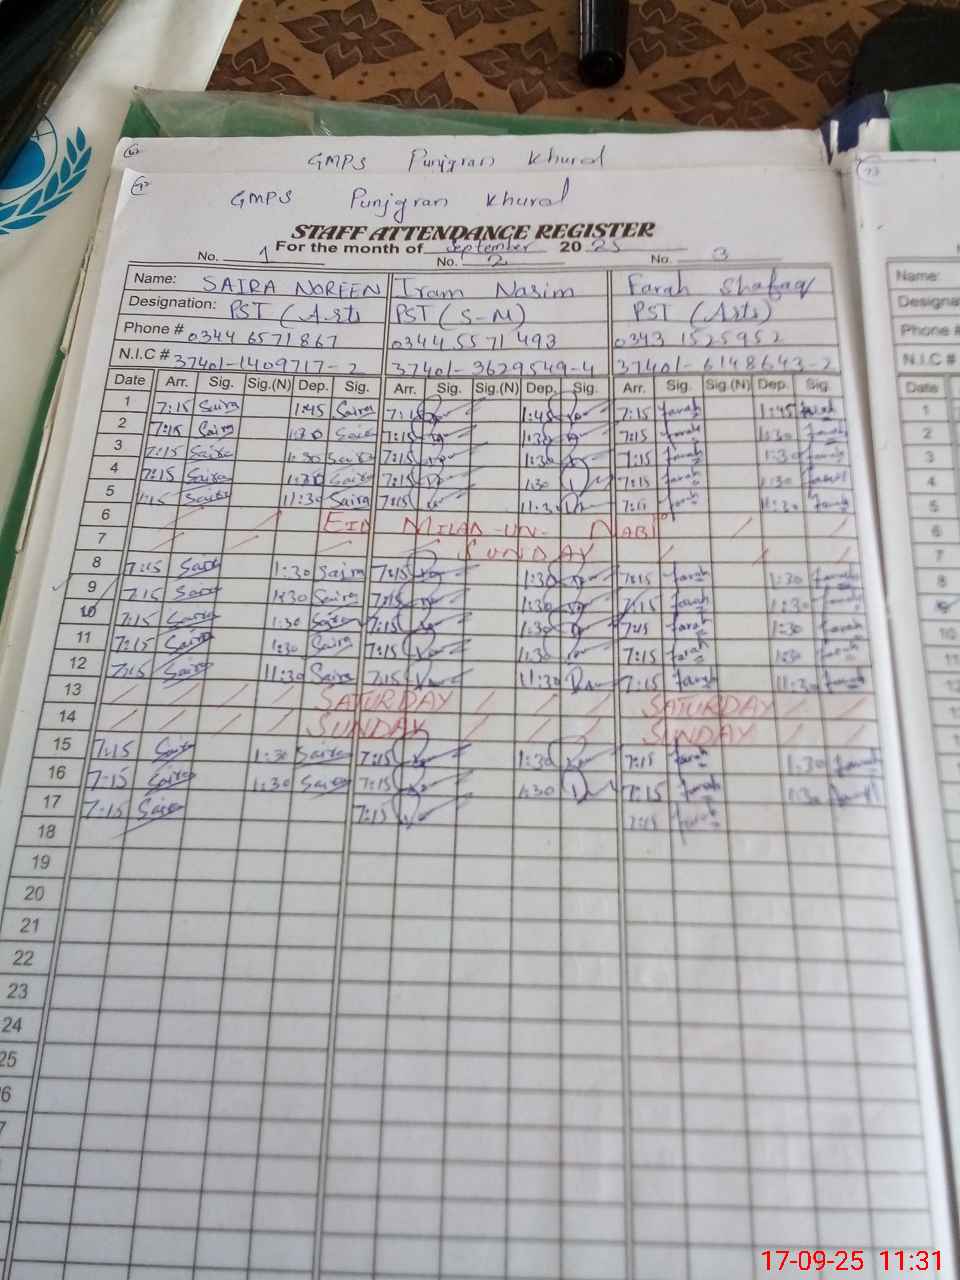 GMPS Punjgran Khurd
GMPS Punjgran Khurd
STAFF ATTENDANCE REGISTER
For the month of September 2025
No. 1 No. 2 No. 3
Name: SAIRA NOREEN Iram Nasim Farah Shafaq
Designation: PST (Arts PST (S-M) PST (Arts)
Phone # 0344 6571867 0344 5571493 0343 1525952
N.I.C # 37401-1409717-2 37401-3629549-4 37401-6148643-2
Date Arr. Sig. Sig.(N) Dep. Sig. Arr. Sig. Sig.(N) Dep. Sig. Arr. Sig. Sig.(N) Dep. Sig.
1 7:15 Saira 1:45 Saira 7:15 1:45 7:15 Farah 1:45 Farah
2 7:15 Saira 1:30 Saira 7:15 1:30 7:15 Farah 1:30 Farah
3 7:15 Saira 1:30 Saira 7:15 1:30 7:15 Farah 1:30 Farah
4 7:15 Saira 1:30 Saira 7:15 1:30 7:15 Farah 1:30 Farah
5 7:15 Saira 11:30 Saira 7:15 11:30 7:15 Farah 11:30 Farah
6 EID MILAD-UN-NABI
7 SUNDAY
8 7:15 Saira 1:30 Saira 7:15 1:30 7:15 Farah 1:30 Farah
9 7:15 Saira 1:30 Saira 7:15 1:30 7:15 Farah 1:30 Farah
10 7:15 Saira 1:30 Saira 7:15 1:30 7:15 Farah 1:30 Farah
11 7:15 Saira 1:30 Saira 7:15 1:30 7:15 Farah 1:30 Farah
12 7:15 Saira 11:30 Saira 7:15 11:30 7:15 Farah 11:30 Farah
13 SATURDAY SATURDAY
14 SUNDAY SUNDAY
15 7:15 Saira 1:30 Saira 7:15 1:30 7:15 Farah 1:30 Farah
16 7:15 Saira 1:30 Saira 7:15 1:30 7:15 Farah 1:30 Farah
17 7:15 Saira 7:15 7:15 Farah
18
19
20
21
22
23
24
25
Name:
Phone #
N.I.C #
Date
1
2
3
4
5
6
7
8
10
11
17-09-25 11:31